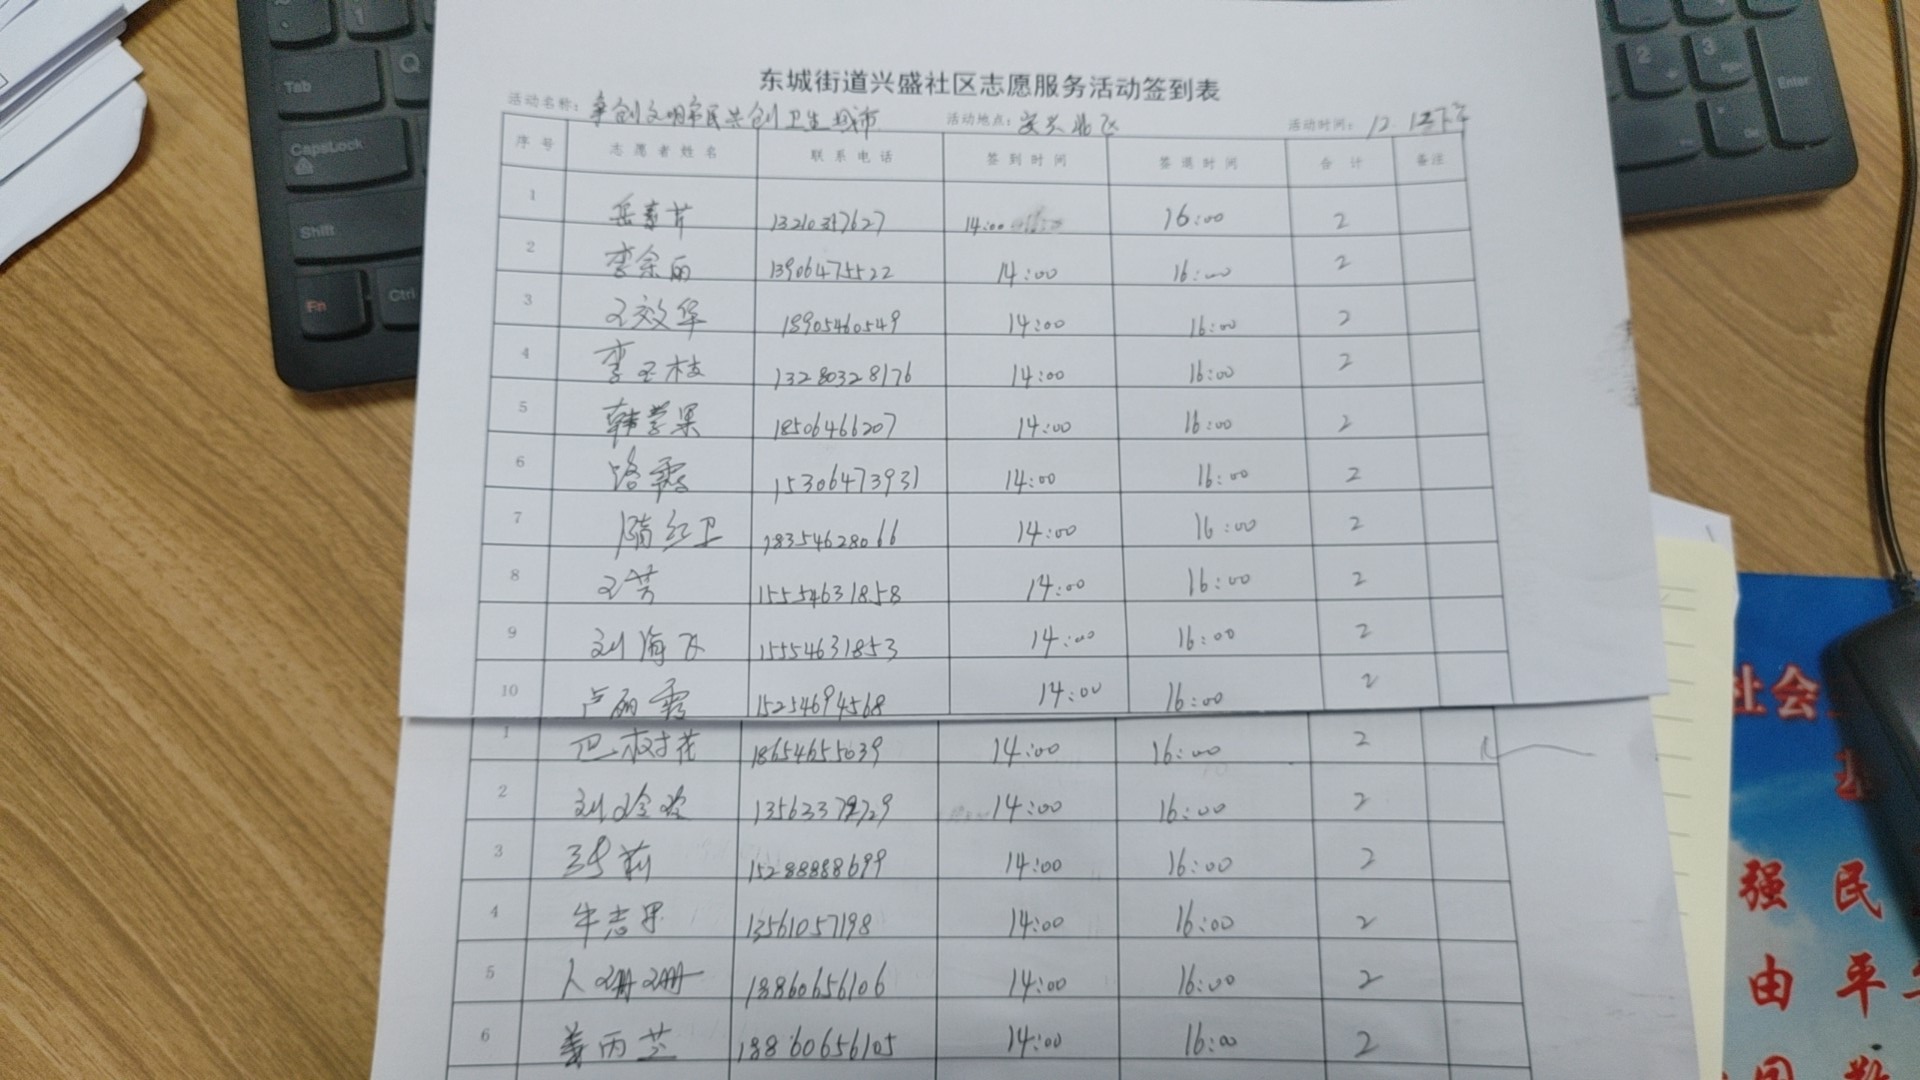 东城街道兴盛社区志愿服务活动签到表
活动名称: 争创文明市民共创卫生城市 活动地点: 安兴北区 活动时间: 12.12下午
序号 志愿者姓名 联系电话 签到时间 签退时间 合计 备注
1 岳素芹 13210317627 14:00 16:00 2
2 李余丽 13906475522 14:00 16:00 2
3 王效华 18905460549 14:00 16:00 2
4 李玉枝 13280328176 14:00 16:00 2
5 韩苹果 18506466207 14:00 16:00 2
6 路霞 15306473931 14:00 16:00 2
7 隋红卫 18354628066 14:00 16:00 2
8 王芳 15554631858 14:00 16:00 2
9 刘海飞 15554631853 14:00 16:00 2
10 卢丽霞 15254694568 14:00 16:00 2
1 巴树花 18654655039 14:00 16:00 2
2 刘玲玲 14:00 16:00 2
3 莉 15288888699 14:00 16:00 2
4 牛志 13561057198 14:00 16:00 2
5 珊珊 18860656106 14:00 16:00 2
6 姜丙芝 18860656105 14:00 16:00 2
Tab
Q
CapsLock
Shift
Fn
Ctrl
1
2
3
Enter
社会
强 民
由 平